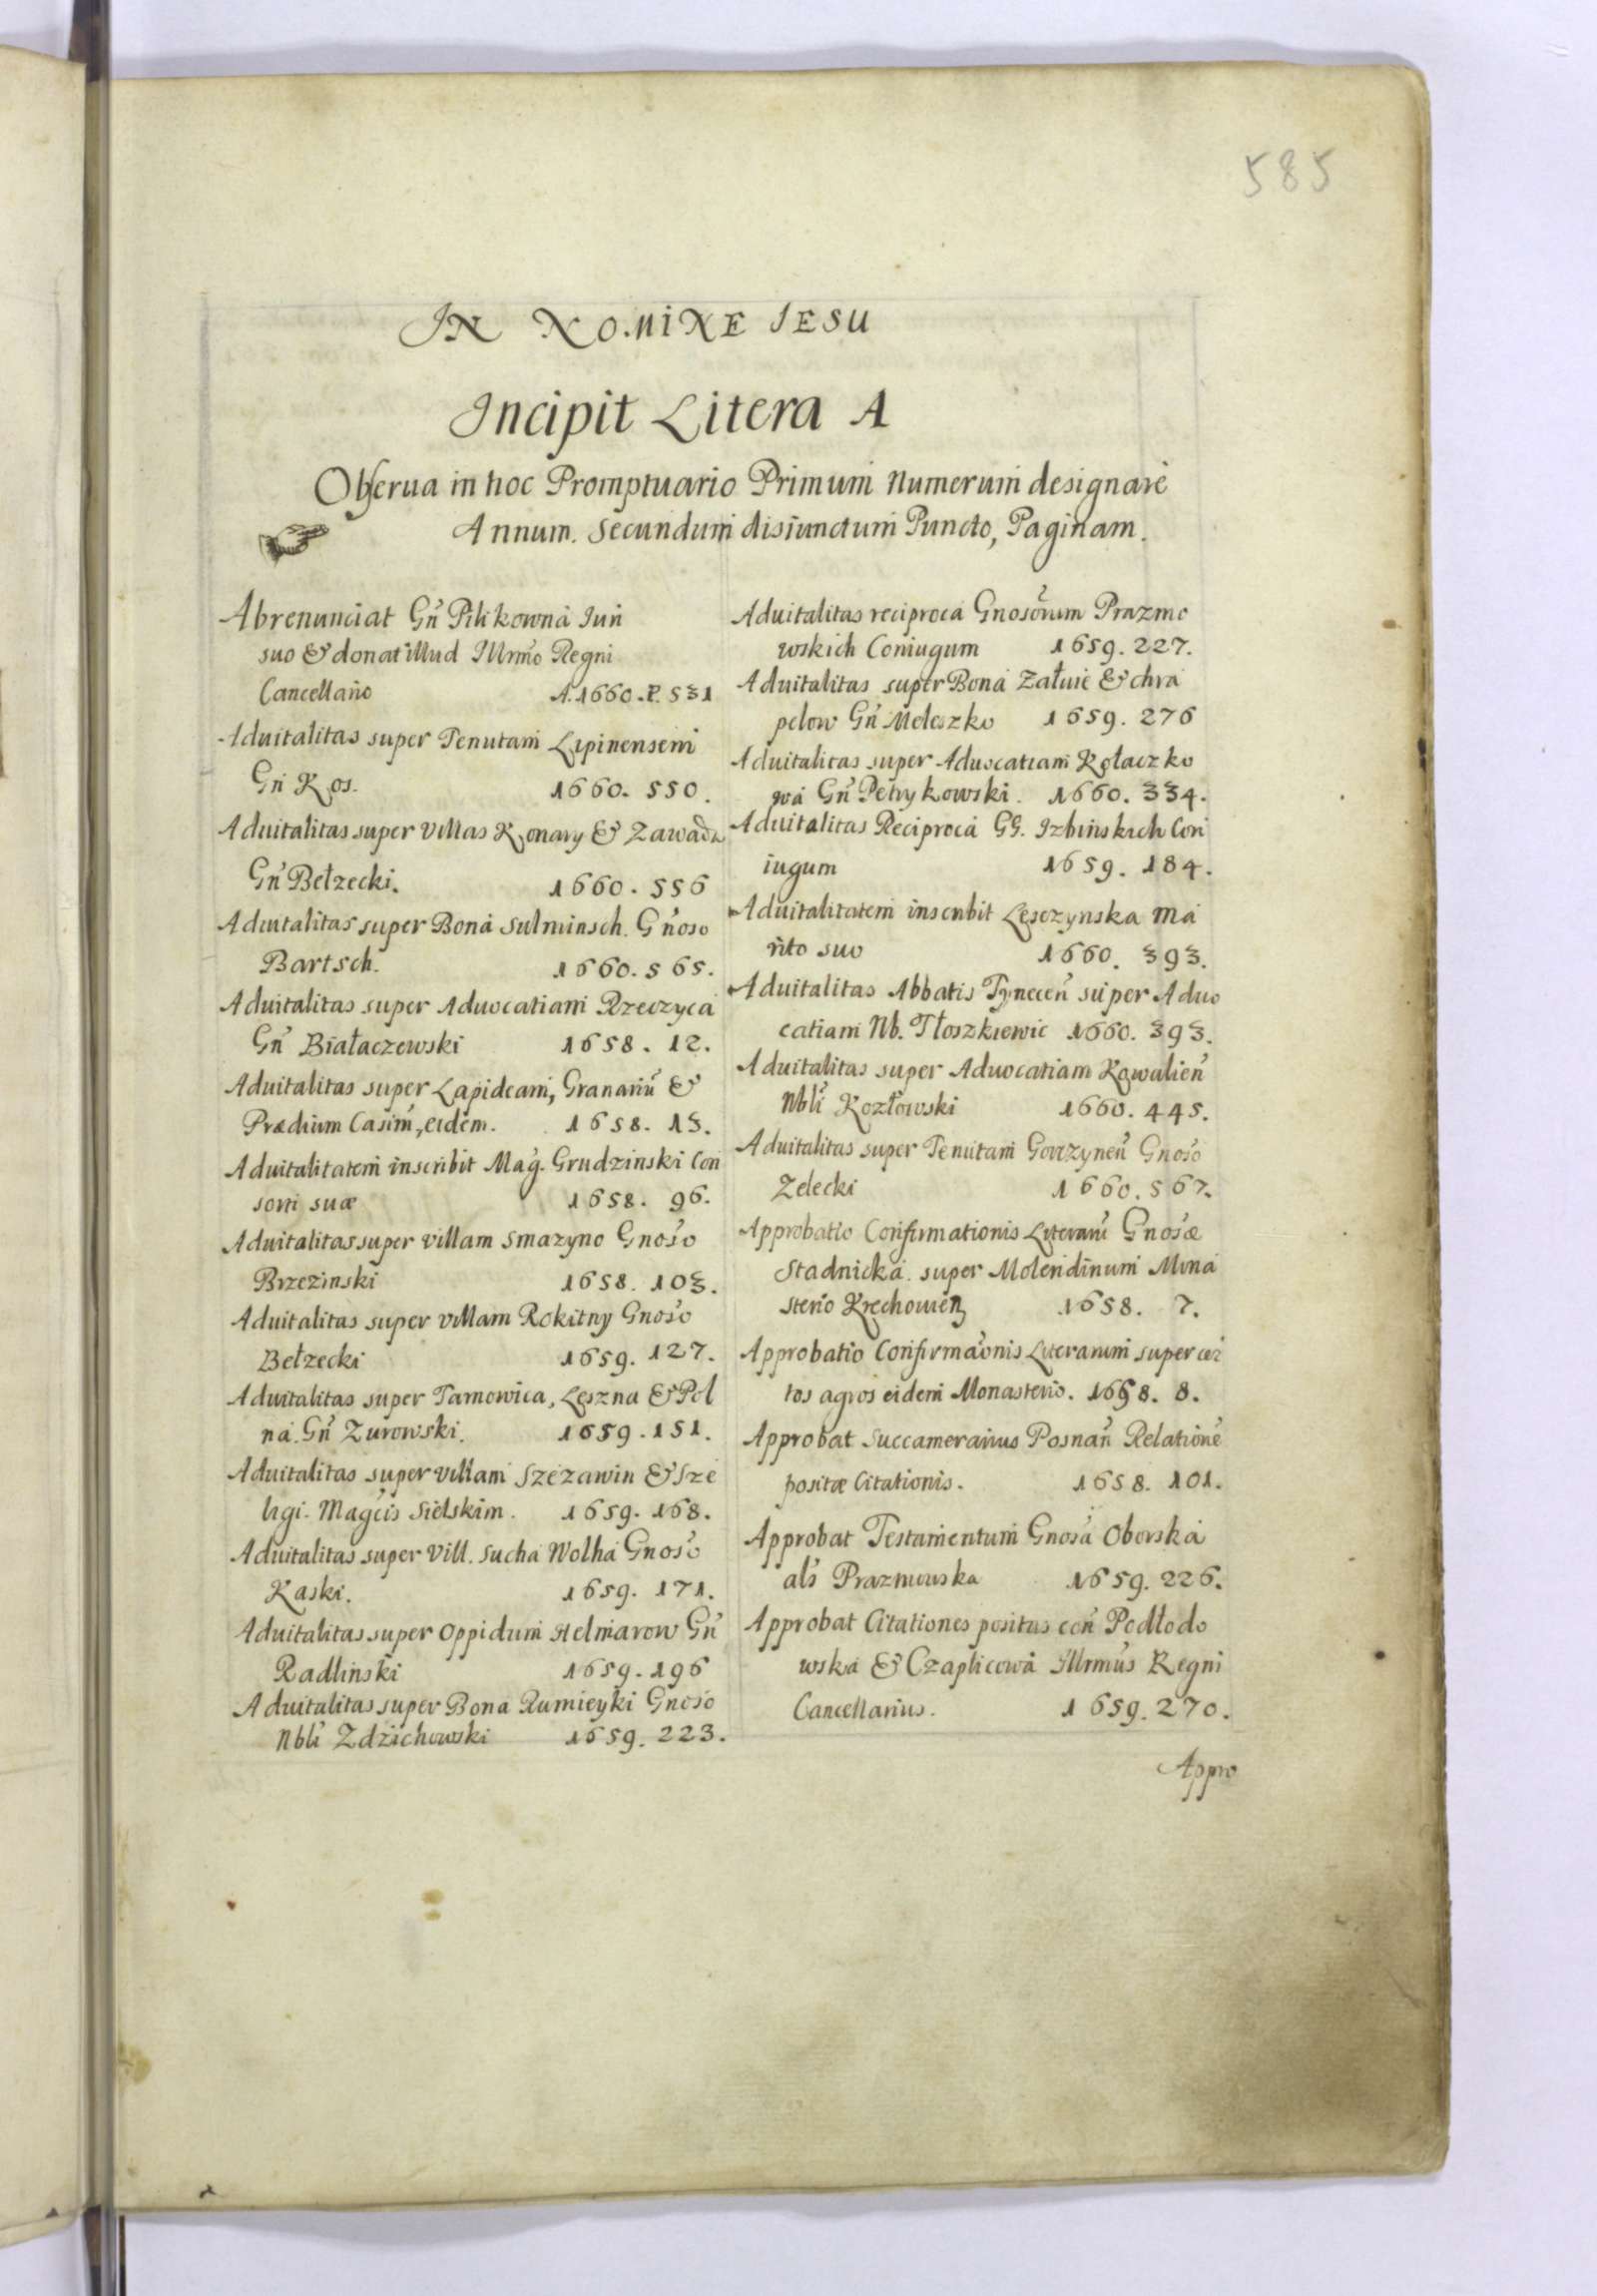 585
IN NOMINE IESU
Incipit Litera A
Obserua in hoc Promptuario Primum Numerum designare
Annum. Secundum disiunctum Puncto, Paginam.
Abrenunciat Gn̄ Pilikowna Iuri
suo & donat illud Illrmo Regni
Cancellario A. 1660. P. 531
Aduitalitas super Tenutam Lipinensem
Gn̄ Kos. 1660. 550.
Aduitalitas super villas Konary & Zawada
Gn̄ Bełzecki. 1660. 556
Aduitalitas super Bona Sulminsch. Gnoso
Bartsch. 1660. 565.
Aduitalitas super Aduocatiam Rzeczyca
Gn̄ Białaczewski 1658. 12.
Aduitalitas super Lapideam, Granariū &
Prædium Casim, eidem. 1658. 13.
Aduitalitatem inscribit Mag. Grudzinski Con
sorti suæ 1658. 96.
Aduitalitas super villam Smazyno Gnoso
Brzezinski 1658. 103.
Aduitalitas super villam Rokitny Gnoso
Bełzecki 1659. 127.
Aduitalitas super Tarnowica, Leszna & Pol
na. Gn̄ Zurowski. 1659. 151.
Aduitalitas super villam Szczawin & Sze
ligi. Magcis Sielskim. 1659. 168.
Aduitalitas super Vill. Sucha Wolha Gnoso
Kaski. 1659. 171.
Aduitalitas super Oppidum Helmarow Gn̄
Radlinski 1659. 196
Aduitalitas super Bona Rumieyki Gnoso
Nbli Zdzichowski 1659. 223.
Aduitalitas reciproca Gnosorum Prazmo
wskich Coniugum 1659. 227.
Aduitalitas super Bona Załuie & chra
pelow Gn̄ Meleszko 1659. 276
Aduitalitas super Aduocatiam Kołaczko
wa Gn̄ Petrykowski. 1660. 334.
Aduitalitas Reciproca GG. Izbinskich Con
iugum 1659. 184.
Aduitalitatem inscribit Lesczynska Ma
rito suo 1660. 393.
Aduitalitas Abbatis Tynecen̄ super Aduo
catiam Nb. Tłoszkiewic 1660. 393.
Aduitalitas super Aduocatiam Kowalien̄
Nbli Kozłowski 1660. 445.
Aduitalitas super Tenutam Gorzynen̄ Gnoso
Zelecki 1660. 567.
Approbatio Confirmationis Literarū Gnosæ
Stadnicka super Molendinum Mona
sterio Krechowien 1658. 7.
Approbatio Confirmaonis Literarum super cer
tos agros eidem Monasterio. 1658. 8.
Approbat Succamerarius Posnan̄ Relationē
positæ Citationis. 1658. 101.
Approbat Testamentum Gnosa Oborska
als Prazmowska 1659. 226.
Approbat Citationes positas con̄ Podłodo
wska & Czaplicowa Illrmus Regni
Cancellarius. 1659. 270.
Appro